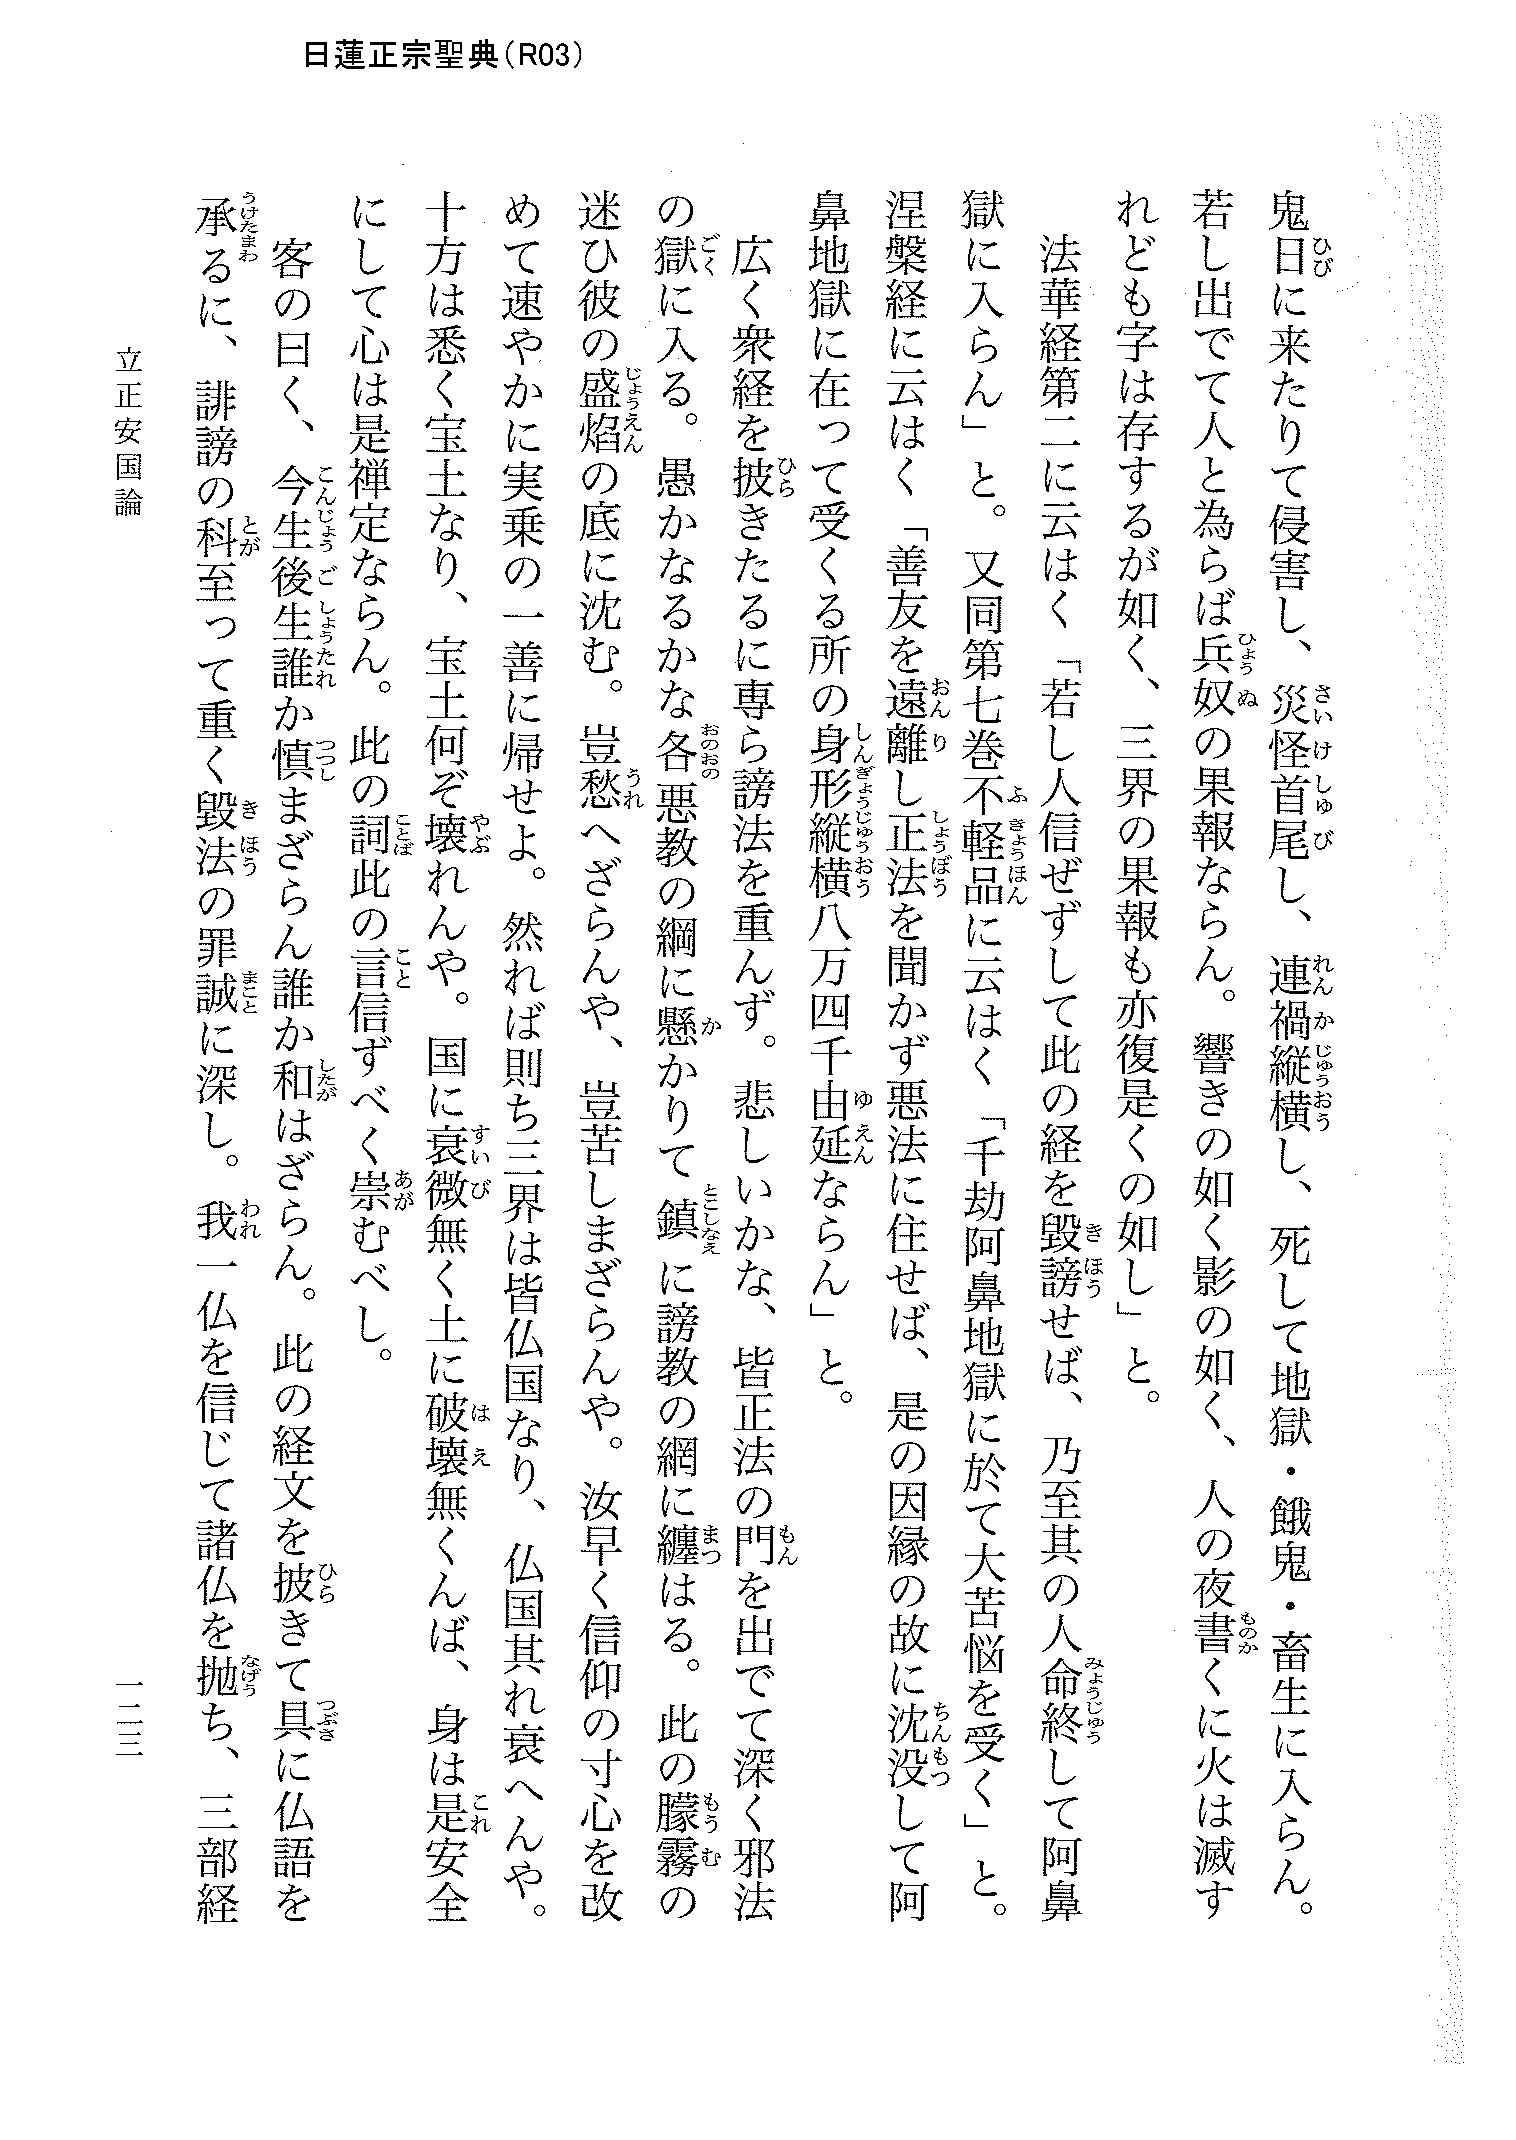 日蓮正宗聖典（R03）
鬼日に来たりて侵害し、災怪首尾し、連禍縦横し、死して地獄・餓鬼・畜生に入らん。
若し出でて人と為らば兵奴の果報ならん。響きの如く影の如く、人の夜書くに火は滅す
れども字は存するが如く、三界の果報も亦復是くの如し」と。
法華経第二に云はく「若し人信ぜずして此の経を毀謗せば、乃至其の人命終して阿鼻
獄に入らん」と。又同第七巻不軽品に云はく「千劫阿鼻地獄に於て大苦悩を受く」と。
涅槃経に云はく「善友を遠離し正法を聞かず悪法に住せば、是の因縁の故に沈没して阿
鼻地獄に在って受くる所の身形縦横八万四千由延ならん」と。
広く衆経を披きたるに専ら謗法を重んず。悲しいかな、皆正法の門を出でて深く邪法
の獄に入る。愚かなるかな各悪教の綱に懸かりて鎮に謗教の網に纏はる。此の朦霧の
迷ひ彼の盛焰の底に沈む。豈愁へざらんや、豈苦しまざらんや。汝早く信仰の寸心を改
めて速やかに実乗の一善に帰せよ。然れば則ち三界は皆仏国なり、仏国其れ衰へんや。
十方は悉く宝土なり、宝土何ぞ壊れんや。国に衰微無く土に破壊無くんば、身は是安全
にして心は是禅定ならん。此の詞此の言信ずべく崇むべし。
客の曰く、今生後生誰か慎まざらん誰か和はざらん。此の経文を披きて具に仏語を
承るに、誹謗の科至って重く毀法の罪誠に深し。我一仏を信じて諸仏を抛ち、三部経
立正安国論
一二三